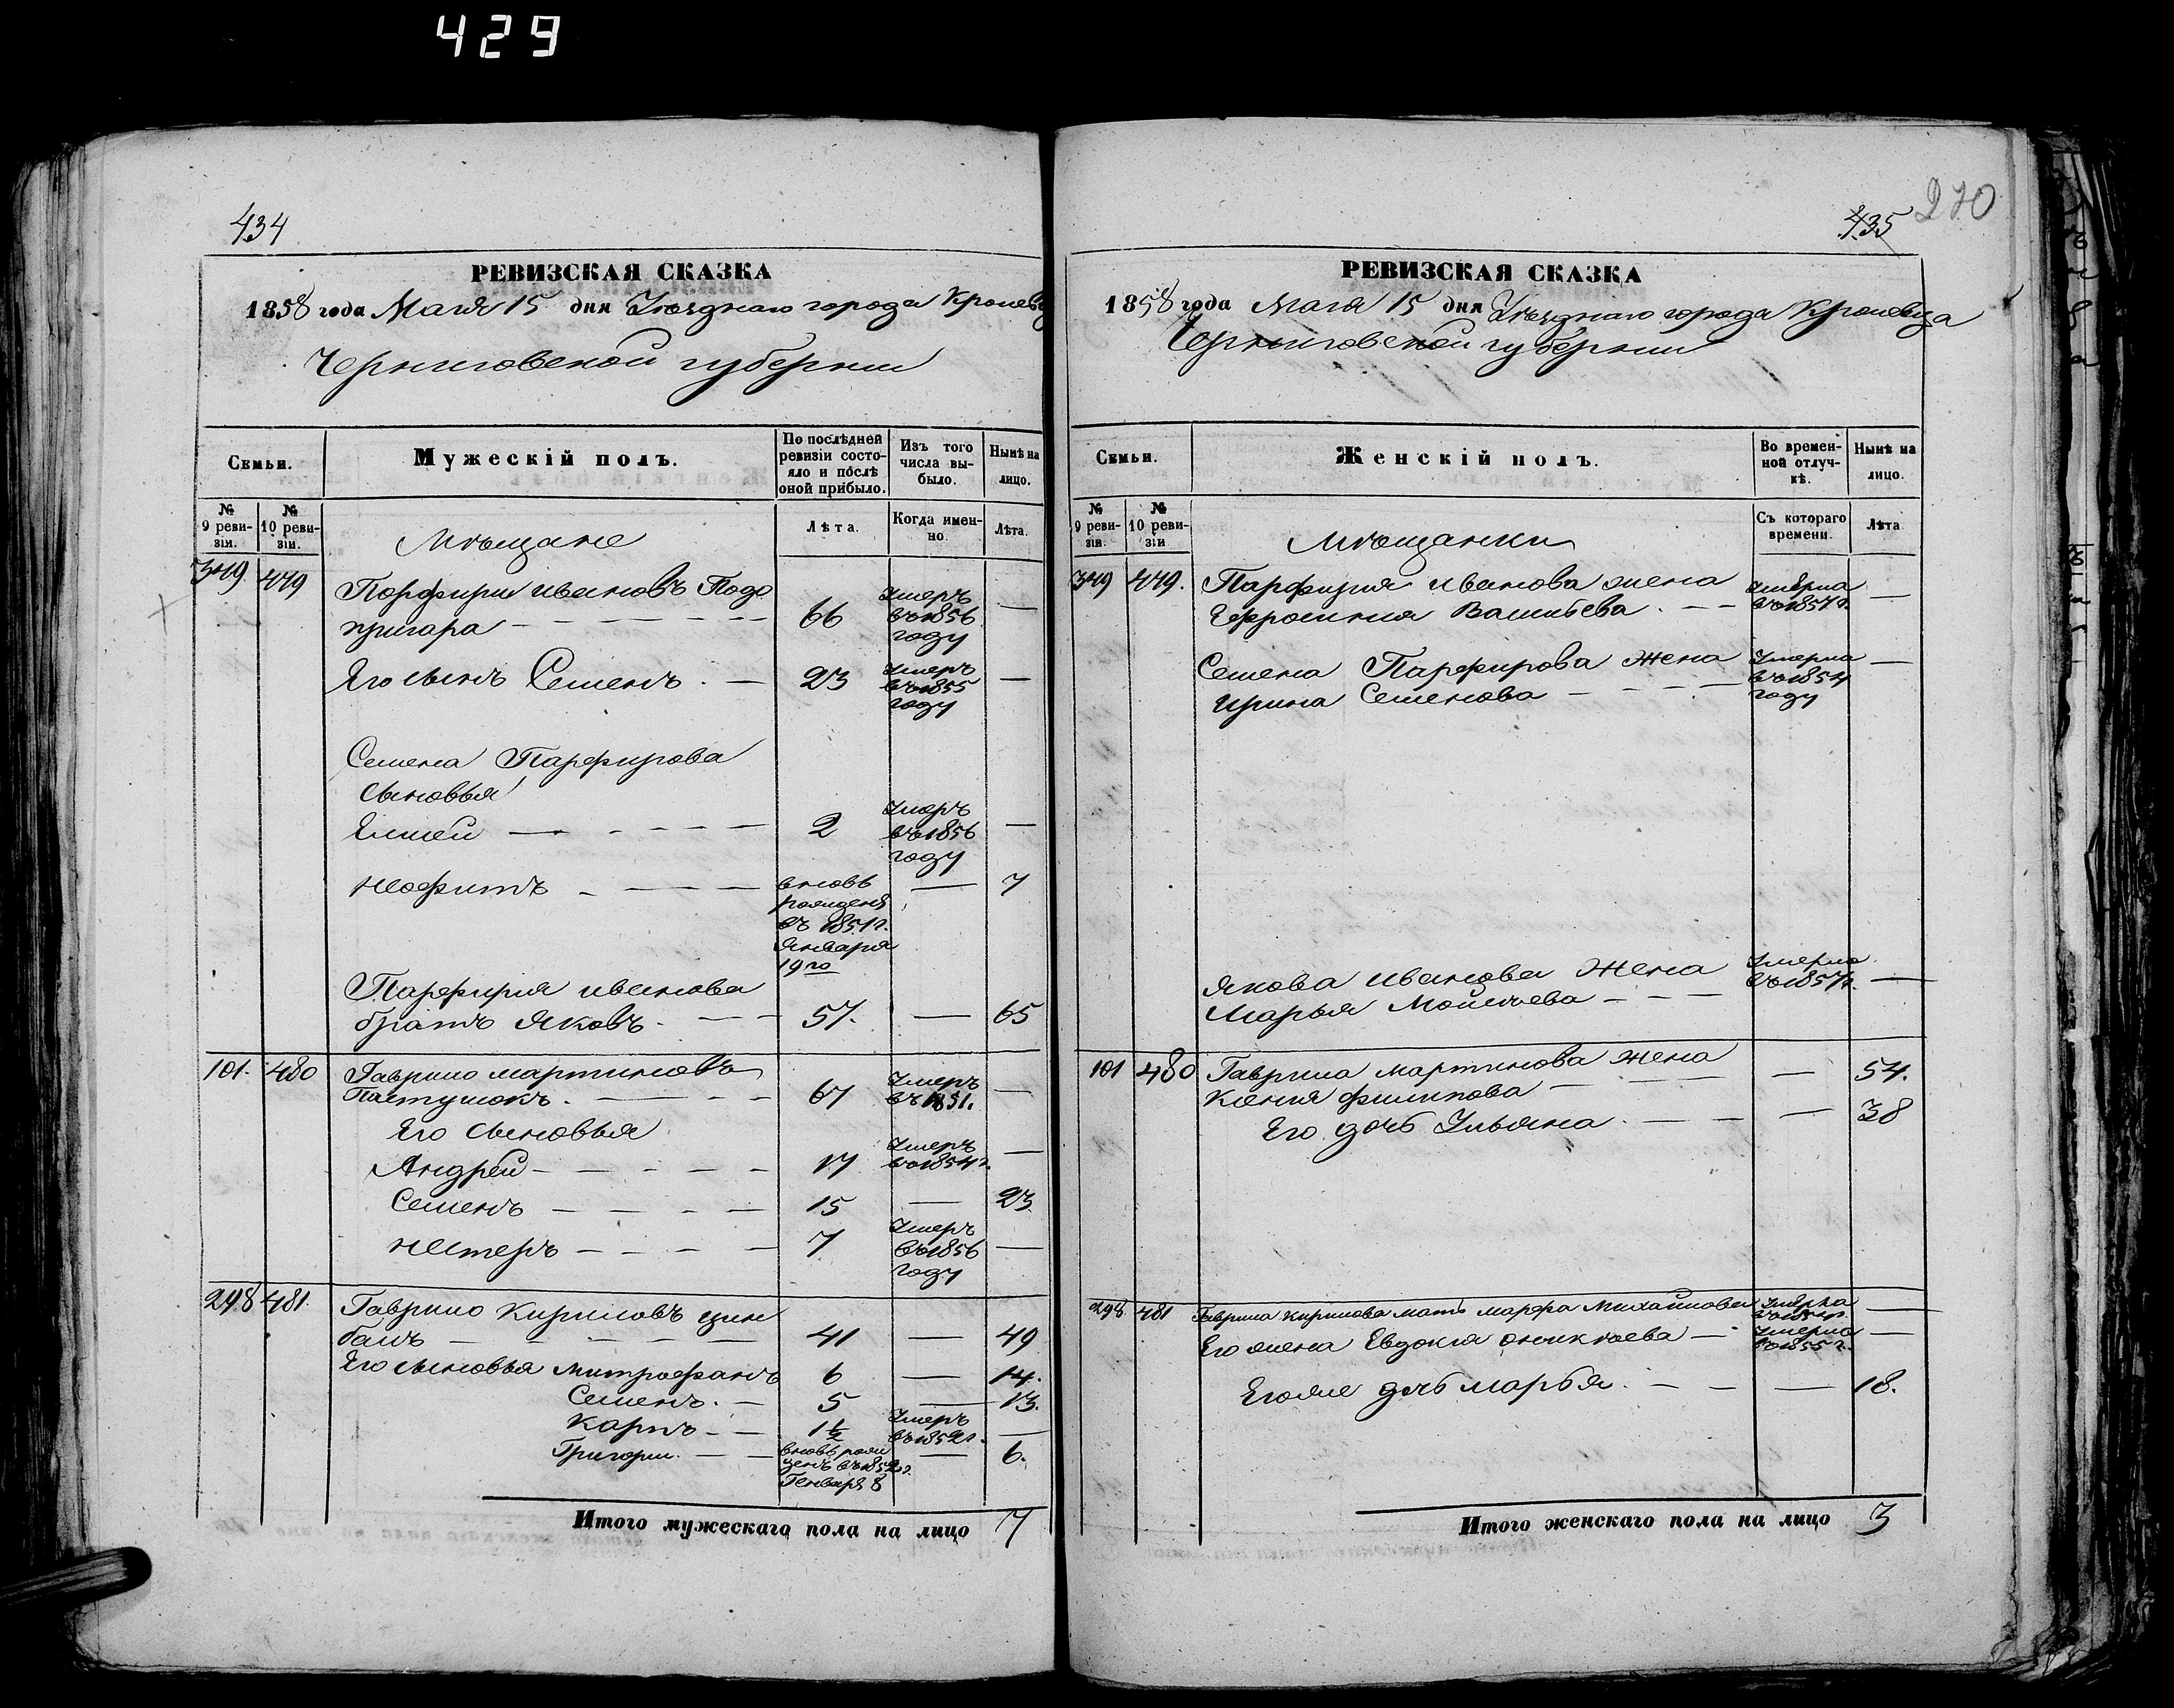 429
434
РЕВИЗСКАЯ СКАЗКА
1858 года Маія 15 дня Уѣзднаго города Кролевца
Черниговской губерніи
Семьи.
Мужескій полъ.
По послѣдней ревизіи состояло и послѣ оной прибыло.
Изъ того числа выбыло.
Нынѣ на лицо.
№ 9 ревизіи.
№ 10 ревизіи.
Мѣщане
Лѣта.
Когда именно.
Лѣта.
349 479 Порфирій Ивановъ Подо
пригара 66 Умеръ въ 1856 году —
Его сынъ Семенъ 23 Умеръ въ 1855 году —
Семена Парфирова
сыновья
Елисей 2 Умеръ въ 1856 году —
Неофитъ вновь рожденъ въ 1851 г. Января 19го — 7
Парфирія Иванова
братъ Яковъ 57. — 65
101. 480 Гаврило Мартиновъ
Пастушокъ 67 Умеръ въ 1851. —
Его сыновья
Андрей 17 Умеръ въ 1854 г. —
Семенъ 15 — 23
Нестеръ 7 Умеръ въ 1856 году —
298 481. Гаврило Кириловъ Цим
балъ 41 — 49
Его сыновья Митрофанъ 6 — 14.
Семенъ 5 — 13.
Карпъ 1½ Умеръ въ 1852 г. —
Григорій вновь рожденъ въ 1852 г. Генваря 8 — 6.
Итого мужескаго пола на лицо 7
435
270
РЕВИЗСКАЯ СКАЗКА
1858 года Маія 15 дня Уѣзднаго города Кролевца
Черниговской губерніи
Семьи.
Женскій полъ.
Во временной отлучкѣ.
Нынѣ на лицо.
№ 9 ревизіи.
№ 10 ревизіи
Мѣщанки
Съ котораго времени.
Лѣта
349 479. Парфирія Иванова жена
Ефросинія Васильева Умерла въ 1857 г. —
Семена Парфирова жена
Ирина Семенова Умерла въ 1854 году —
Якова Иванова жена
Марья Моисѣева Умерла въ 1857 г. —
101 480 Гаврила Мартинова жена
Ксенія Филипова — 54.
Его дочь Ульяна — 38
298 481 Гаврила Кирилова мать Марфа Михайлова Умерла —
Его жена Евдокія Умерла въ 1855 г. —
Егоже дочь Марья — 18.
Итого женскаго пола на лицо 3